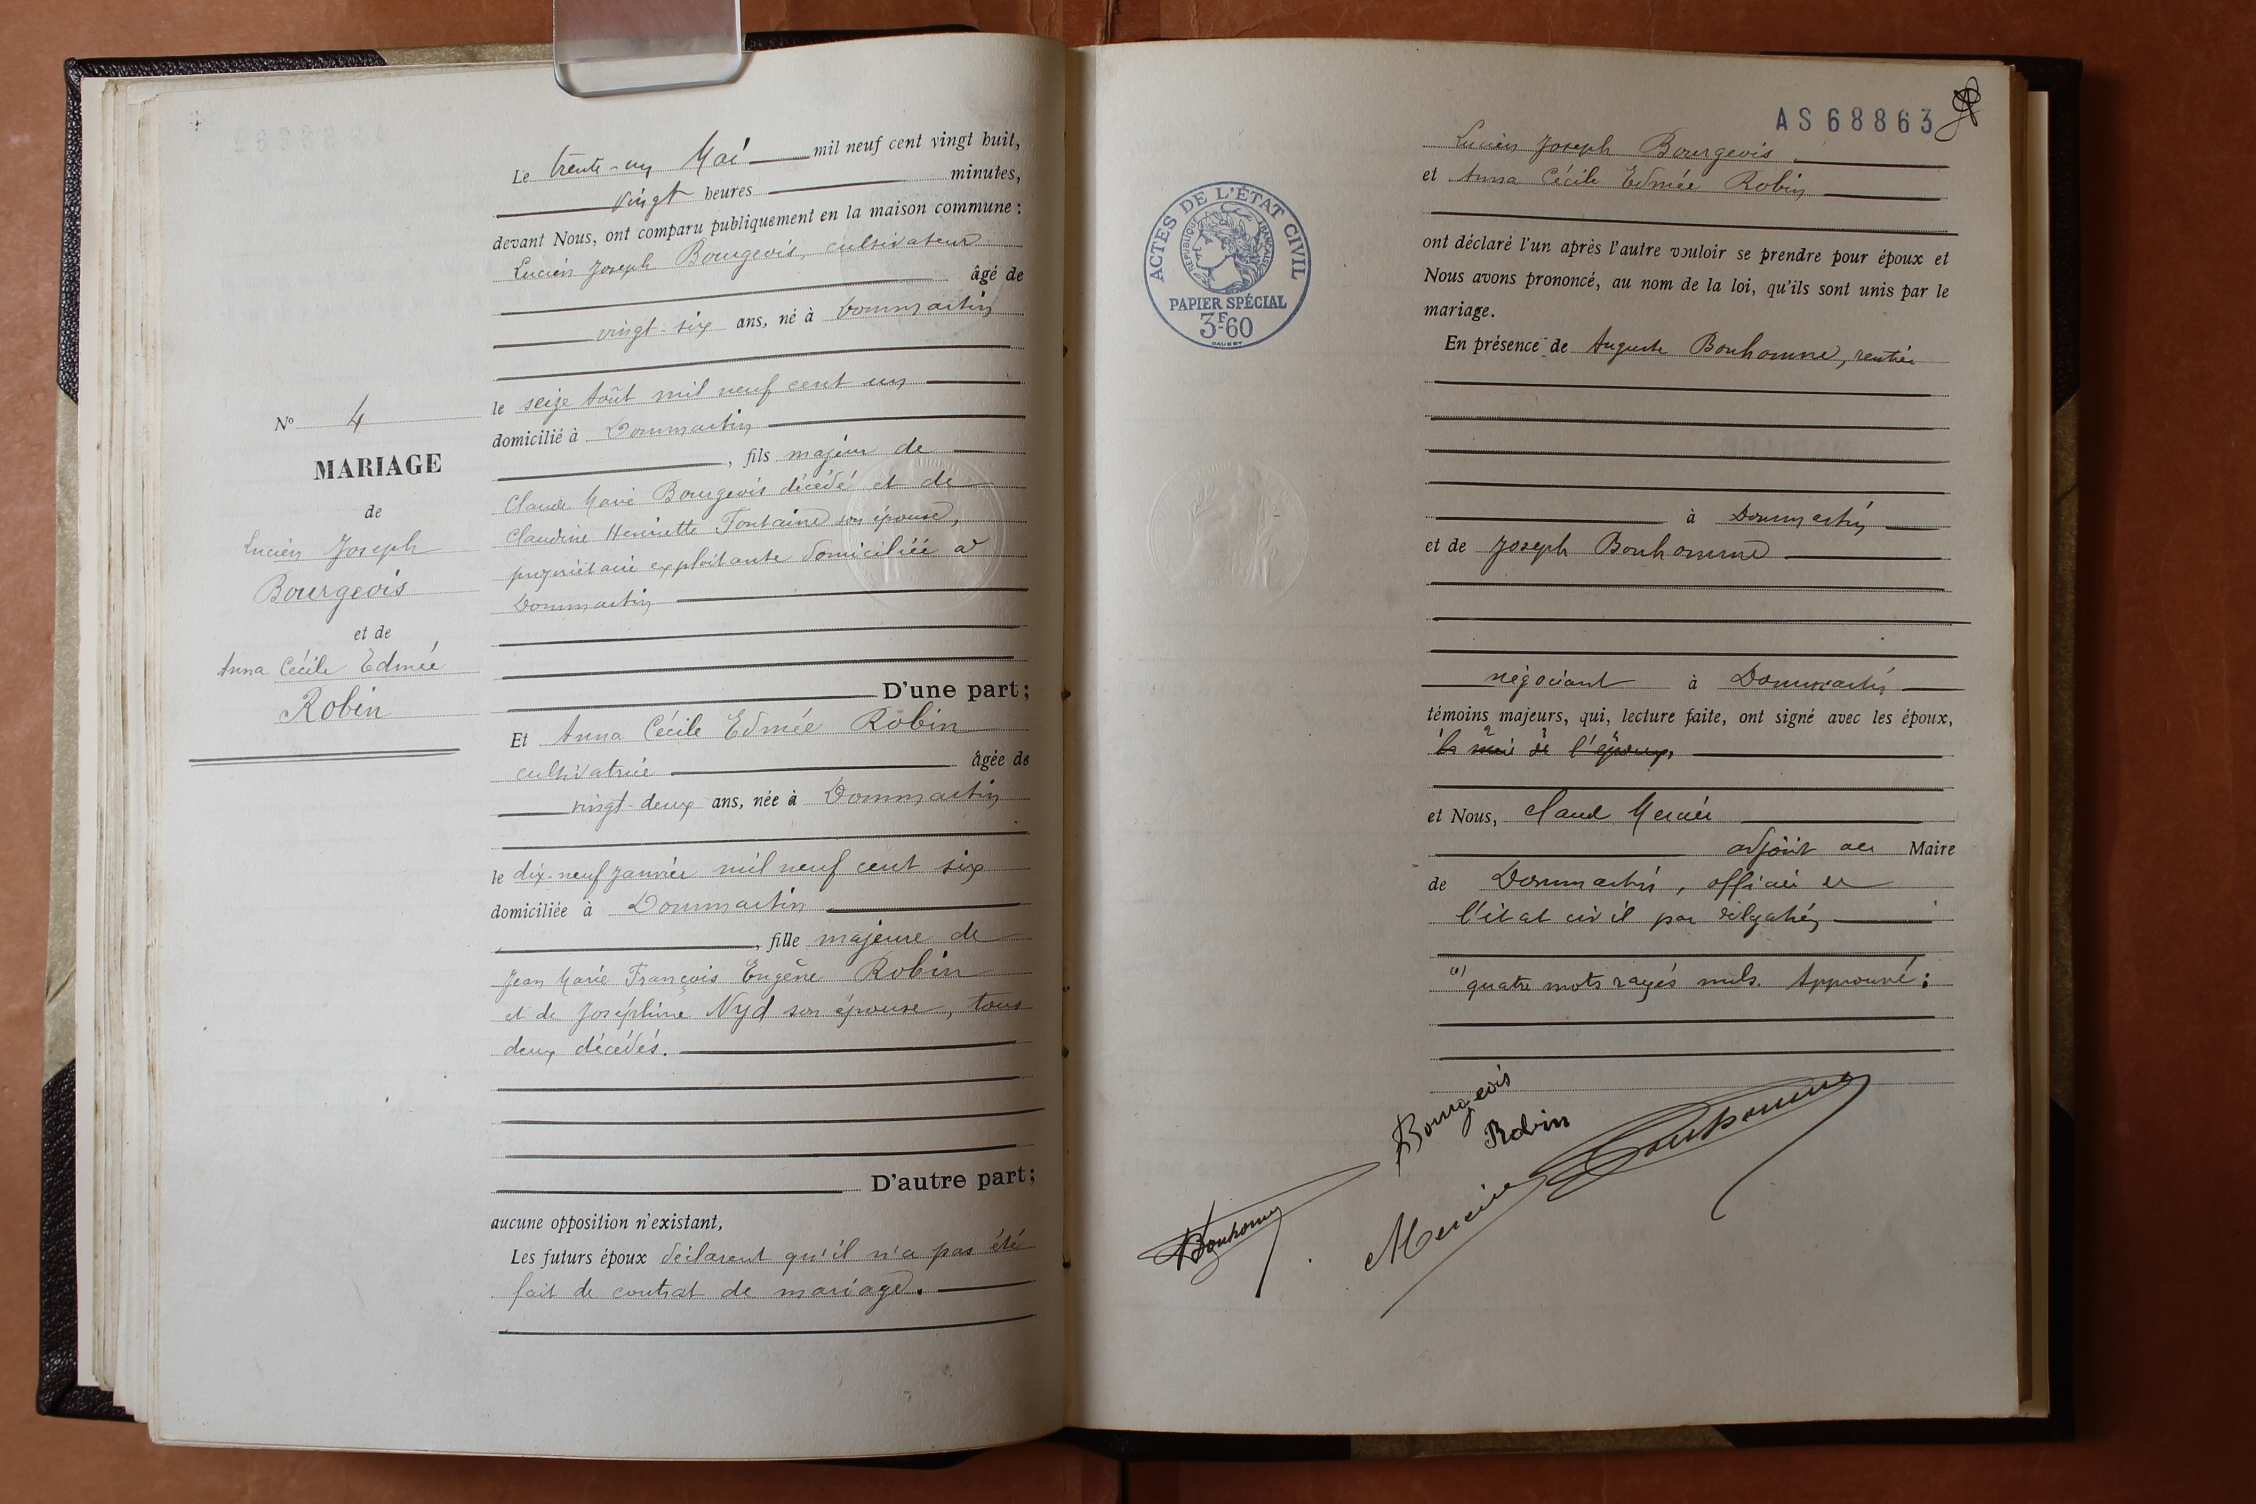 Le trente-un Mai mil neuf cent vingt huit,
vingt heures minutes,
devant Nous, ont comparu publiquement en la maison commune :
Lucien Joseph Bourgeois, cultivateur
âgé de
vingt-six ans, né à Dommartin
le seize Août mil neuf cent un
domicilié à Dommartin
, fils majeur de
Claude Marie Bourgeois décédé et de
Claudine Henriette Fontaine son épouse,
propriétaire exploitante domiciliée à
Dommartin
D'une part ;
Nº 4
MARIAGE
de
Lucien Joseph
Bourgeois
et de
Anna Cécile Edmée
Robin
Et Anna Cécile Edmée Robin
cultivatrice âgée de
vingt-deux ans, née à Dommartin
le dix-neuf Janvier mil neuf cent six
domiciliée à Dommartin
, fille majeure de
Jean Marie François Eugène Robin
et de Joséphine Nyd son épouse, tous
deux décédés.
D'autre part ;
aucune opposition n'existant,
Les futurs époux déclarent qu'il n'a pas été
fait de contrat de mariage.
AS68863
ACTES DE L'ÉTAT CIVIL
RÉPUBLIQUE FRANÇAISE
PAPIER SPÉCIAL
3F60
Lucien Joseph Bourgeois
et Anna Cécile Edmée Robin
ont déclaré l'un après l'autre vouloir se prendre pour époux et
Nous avons prononcé, au nom de la loi, qu'ils sont unis par le
mariage.
En présence de Auguste Bonhomme, rentier
à Dommartin
et de Joseph Bonhomme
négociant à Dommartin
témoins majeurs, qui, lecture faite, ont signé avec les époux,
de l'époux,
et Nous, Claude Mercier
adjoint au Maire
de Dommartin, officier de
l'état civil par délégation
(1) quatre mots rayés nuls. Approuvé :
Bourgeois
Robin
Bonhomme
Mercier
Bonhomme